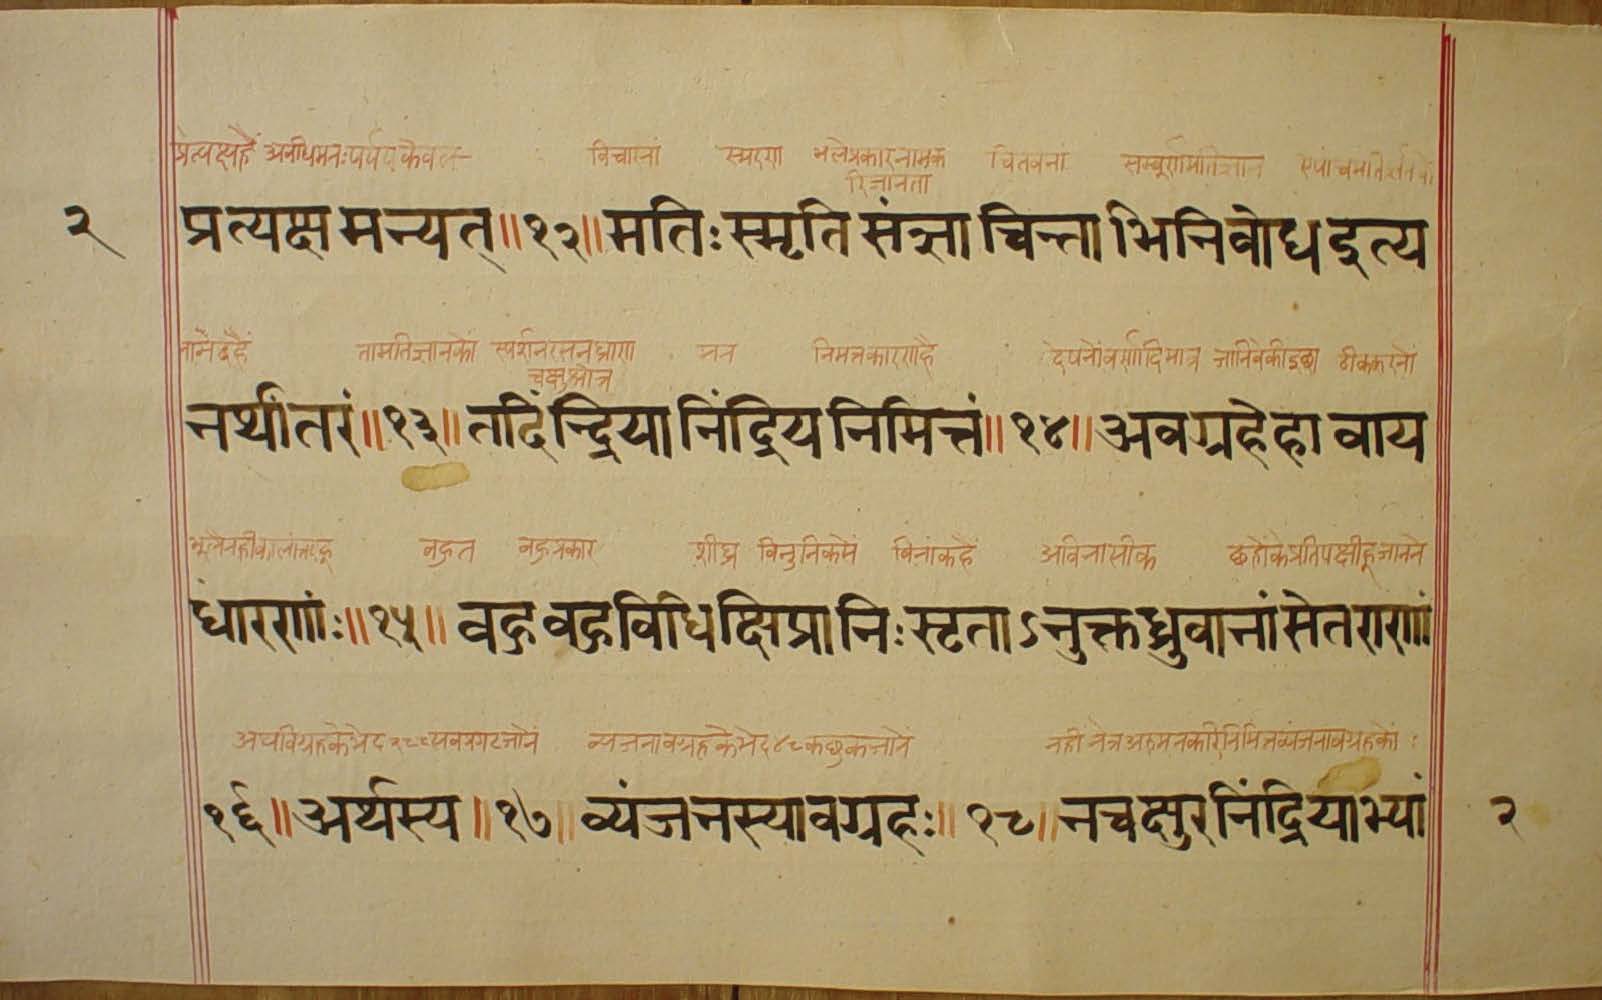 प्रत्यक्षहैं अवधिमनःपर्यय केवल विचारनां स्मरण भलेप्रकारनामक चितवनां सम्पूर्णमतिज्ञान
रिजानता
२ प्रत्यक्षमन्यत्॥१२॥मतिःस्मृतिसंज्ञाचिन्ताभिनिवोधइत्य २
तामतिज्ञानकों स्पर्शनरसनघ्राण मन निमत्तकारणहै देषनोंवर्णादिमात्र जानिवेकीइछा ठीककरनों
चक्षुश्रोत्र
नर्थांतरं॥१३॥तदिंन्द्रियानिंद्रियनिमित्तं॥१४॥अवग्रहेहावाय
वहुत वहुप्रकार शीघ्र विनांकहें अविनासीक जानने
धांरणांः॥१५॥वहुवहुविधिक्षिप्रानिःसृताऽनुक्तध्रुवानांसेतराराणां
व्यंजनावग्रहकेभेद४८कछुकजानें नहींनेत्रअरुमनकरिनिमित्तव्यंजनावग्रहकों
१६॥अर्थस्य॥१७॥व्यंजनस्यावग्रहः॥१८॥नचक्षुरनिंद्रियाभ्यां २